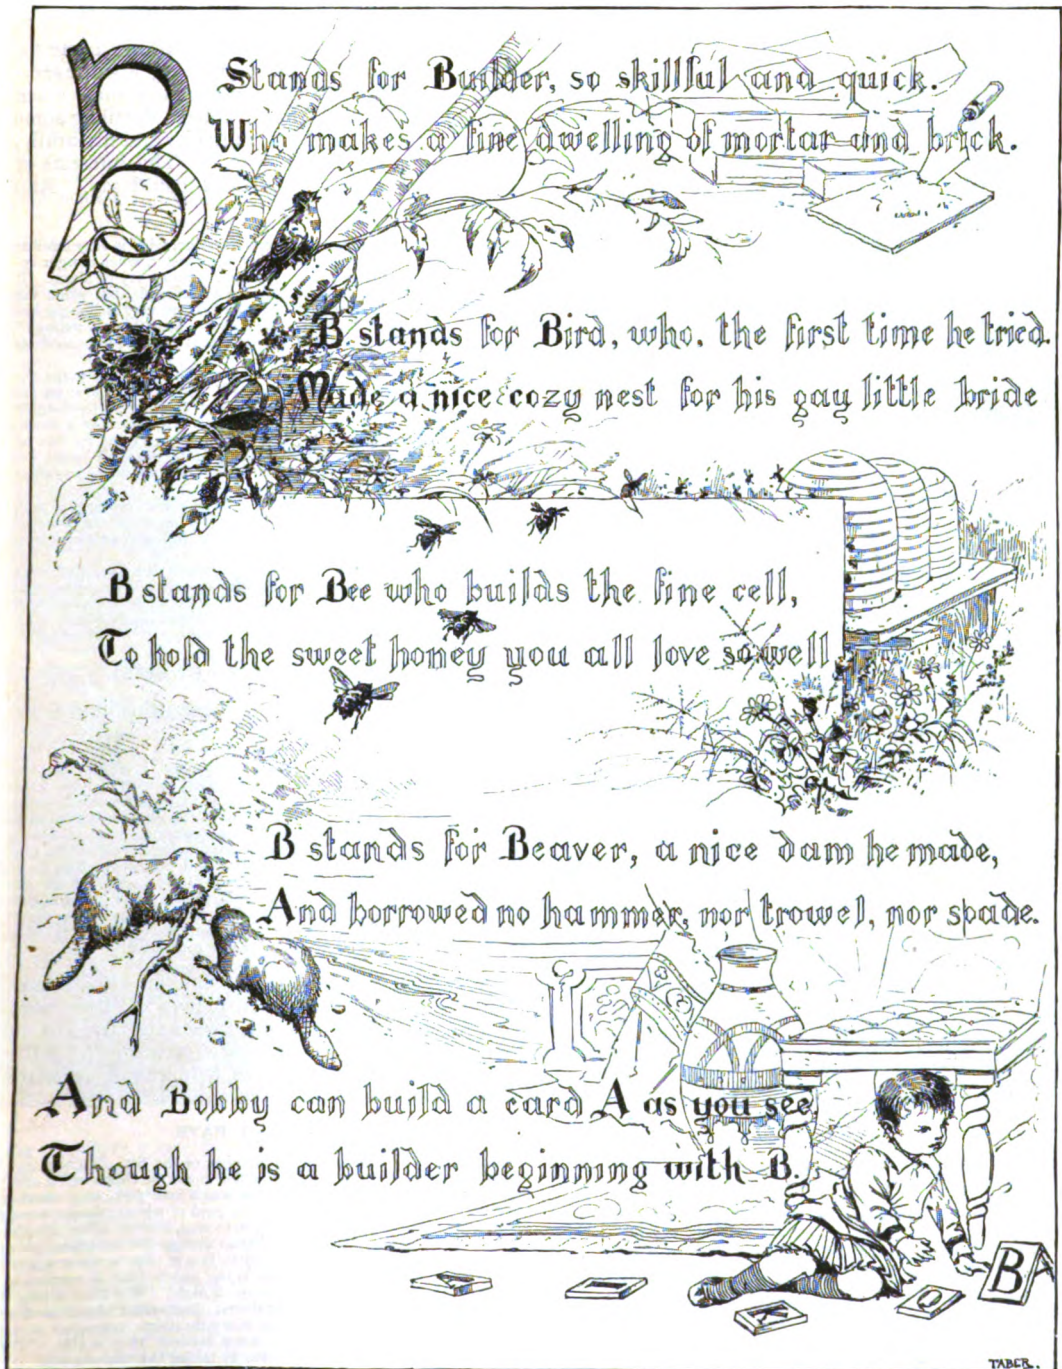 B Stands for Builder, so skillful and quick.
Who makes a fine dwelling of mortar and brick.
B stands for Bird, who, the first time he tried.
Made a nice cozy nest for his gay little bride
B stands for Bee who builds the fine cell,
To hold the sweet honey you all love so well
B stands for Beaver, a nice dam he made,
And borrowed no hammer, nor trowel, nor spade.
And Bobby can build a card A as you see,
Though he is a builder beginning with B.
B
A
I
K
O
TABER.